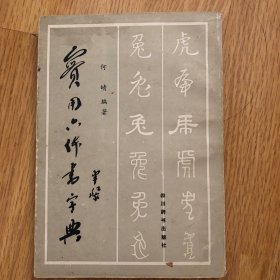 實用六体書字典
何崝編著
兔兔兔兔兔兔
虎虎虎虎虎虎
四川辞书出版社